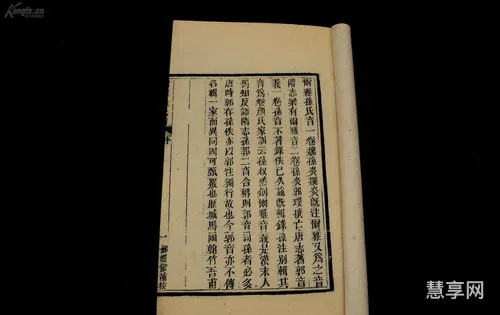 爾雅孫氏音一卷魏孫炎撰炎旣注爾雅又爲之音
隋志梁有爾雅音二卷孫炎郭璞撰亡唐志著郭音
義一卷孫音不著錄佚已久茲旣輯錄孫注別輯其
音爲卷顏氏家訓云孫叔然創爾雅音義是漢末人
獨知反語隋志孫郭二音合稱則郭音同孫者必多
唐時郭存孫佚亦以郭注獨行故也今郭音亦不傳
各輯一家而異同固可觀歷城馬國翰竹吾甫
孔夫子旧书网
Kongfz.cn
慧享网